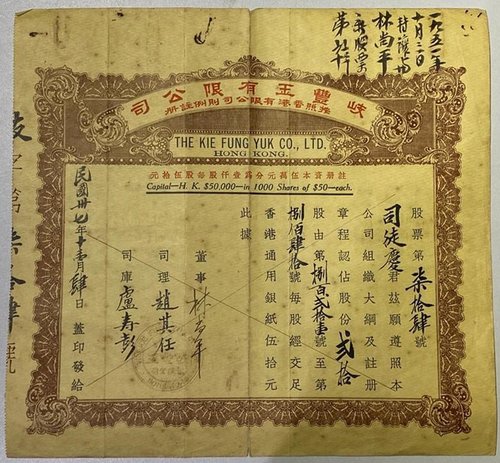 一九五一年
十月三十日
轉讓與
林尚平
新股票
岐豐玉有限公司
遵照香港有限公司則例註冊
THE KIE FUNG YUK CO., LTD.
HONG KONG.
註冊資本伍萬元分為壹仟股每股伍拾元
Capital—H. K. $50,000—in 1000 Shares of $50—each.
股票第柒拾肆號
司徒慶君茲願遵照本
公司組織大綱及註冊
章程認佔股份貳拾
股由第捌百貳拾壹號至第
捌佰肆拾號每股經交足
香港通用銀紙伍拾元
此據
董事 林尚平
司理 趙其任
司庫 盧壽彭
民國卅七年十壹月肆日 蓋印發給
字第柒拾肆號